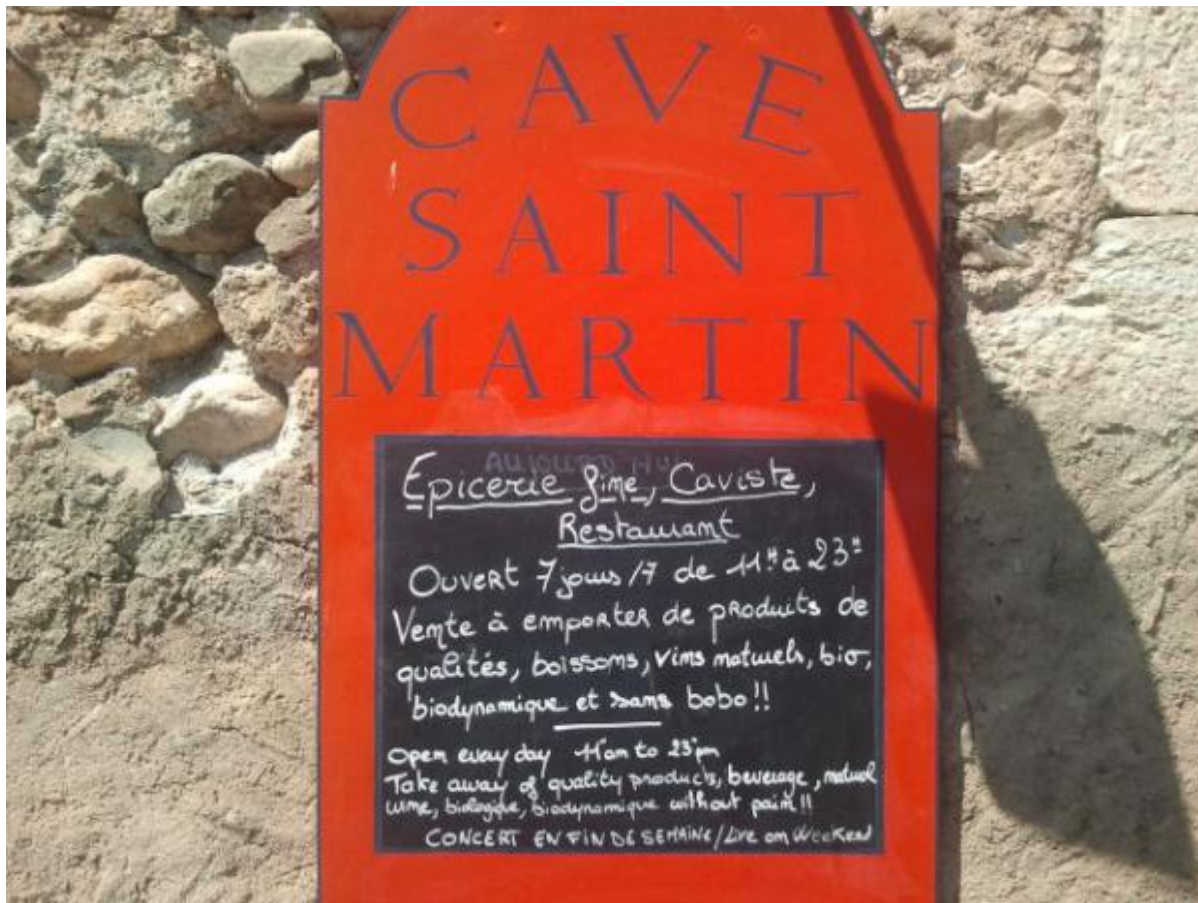 CAVE
SAINT
MARTIN
AUJOURD'HUI
Epicerie fine, Caviste,
Restaurant
Ouvert 7 jours /7 de 11H à 23H
Vente à emporter de produits de
qualités, boissons, vins naturels, bio,
biodynamique et sans bobo !!
Open every day 11am to 23pm
Take away of quality products, beverage, natural
wine, biologique, biodynamique without pain !!
CONCERT EN FIN DE SEMAINE / Live on Weekend